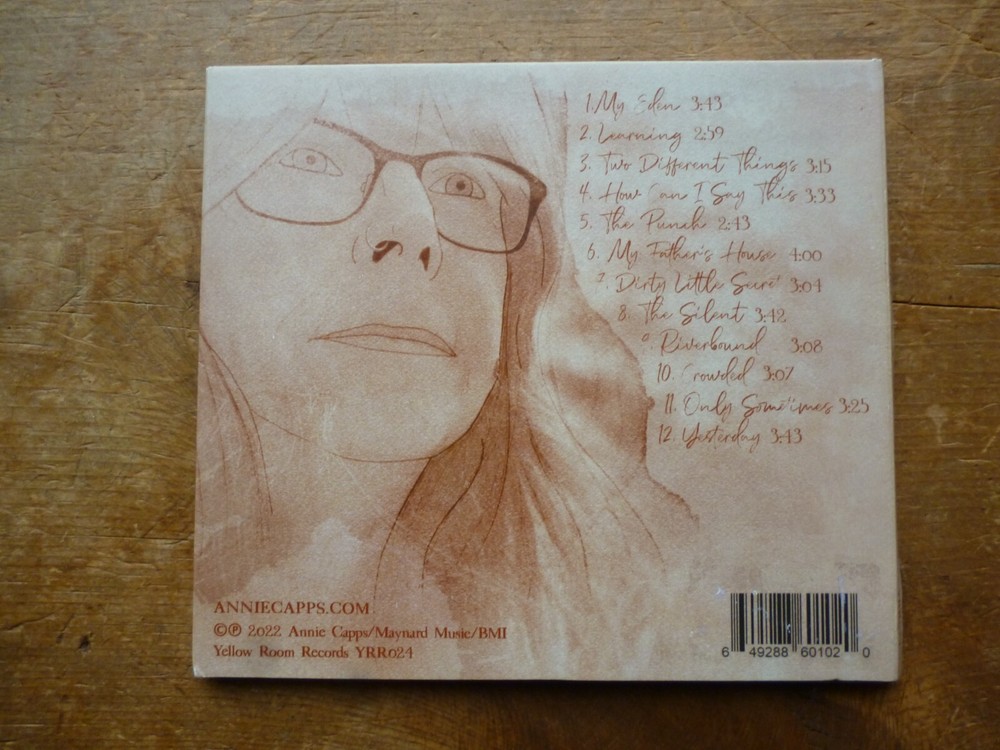 1. My Eden 3:43
2. Learning 2:59
3. Two Different Things 3:15
4. How Can I Say This 3:33
5. The Punch 2:43
6. My Father's House 4:00
7. Dirty Little Secret 3:04
8. The Silent 3:42
9. Riverbound 3:08
10. Crowded 3:07
11. Only Sometimes 3:25
12. Yesterday 3:43
ANNIECAPPS.COM
©℗ 2022 Annie Capps/Maynard Music/BMI
Yellow Room Records YRR024
6 49288 60102 0